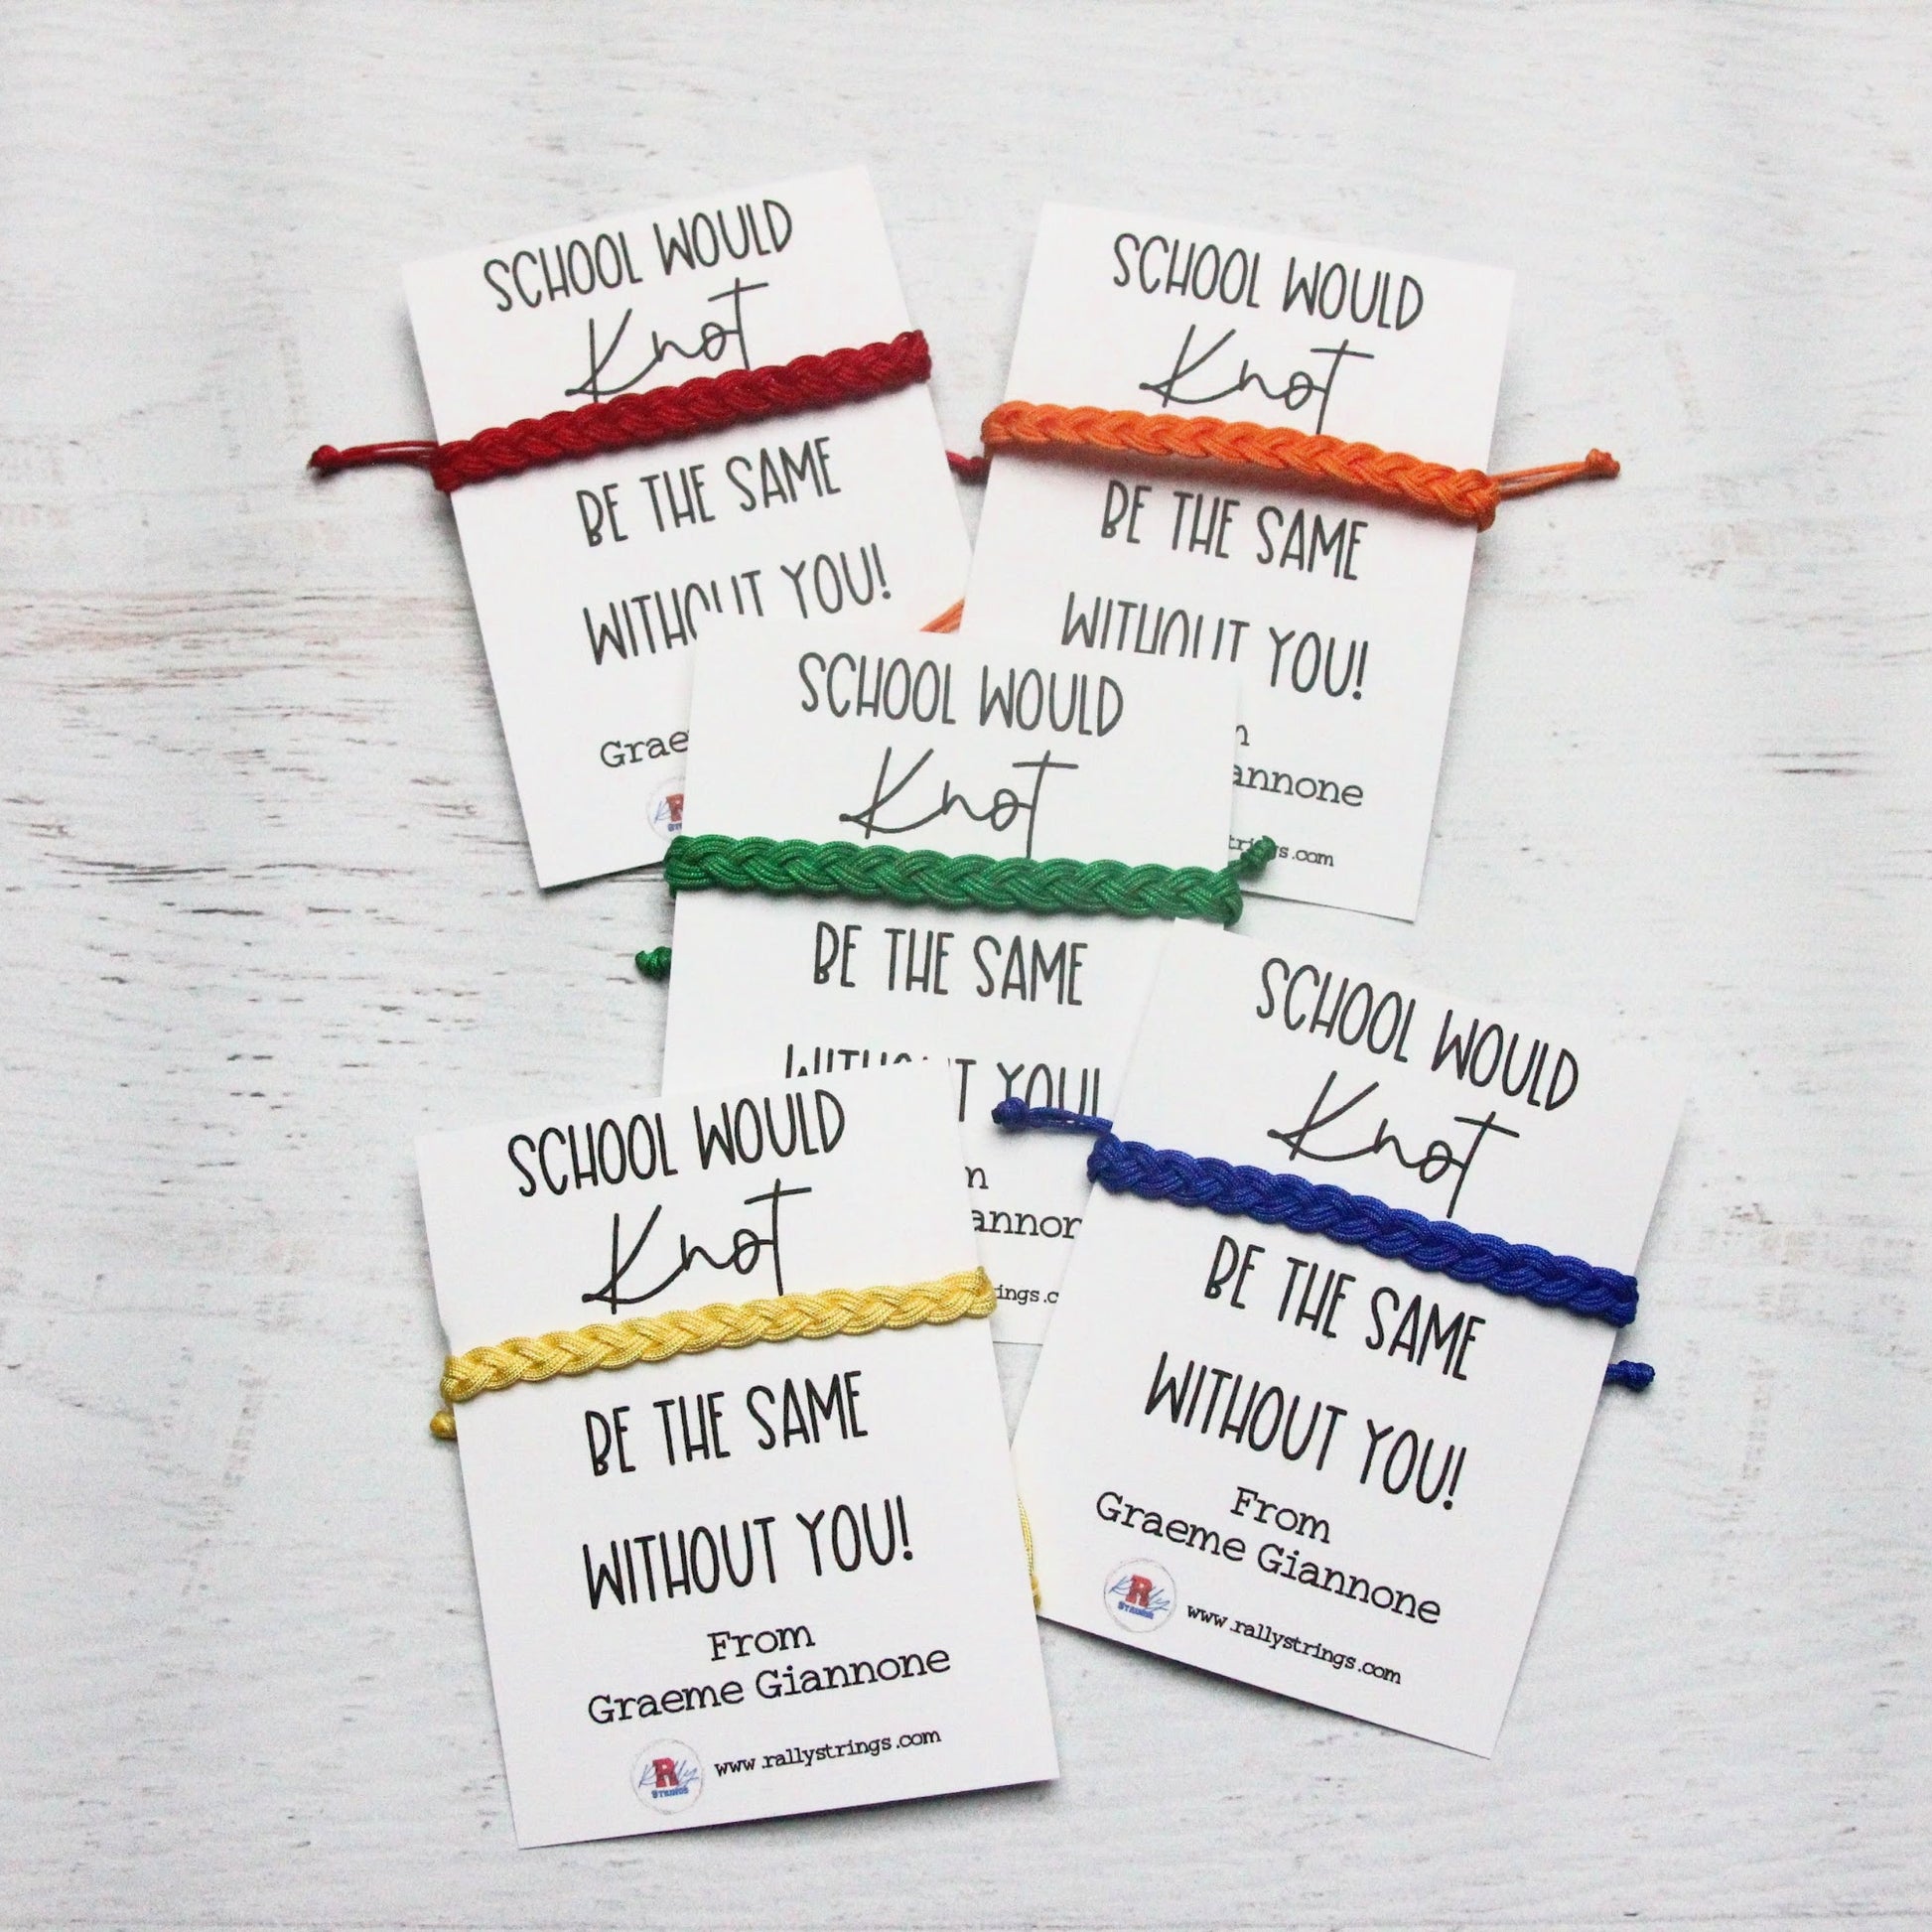 SCHOOL WOULD
Knot
BE THE SAME
WITHOUT YOU!
SCHOOL WOULD
Knot
BE THE SAME
WITHOUT YOU!
annone
.com
SCHOOL WOULD
Knot
BE THE SAME
WITHOUT YOU!
SCHOOL WOULD
Knot
BE THE SAME
WITHOUT YOU!
From
Graeme Giannone
Rally
STRINGS
www.rallystrings.com
SCHOOL WOULD
Knot
BE THE SAME
WITHOUT YOU!
From
Graeme Giannone
Rally
STRINGS
www.rallystrings.com